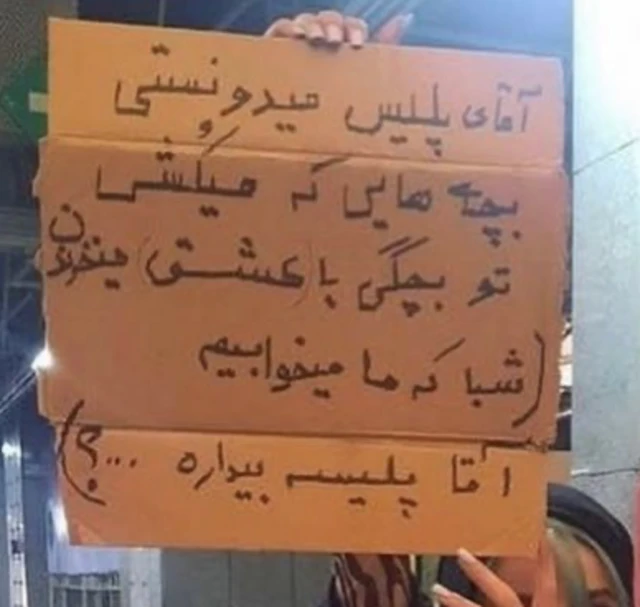 آقای پلیس میدونستی
بچه هایی که میکُشی
تو بچگی با عشق میخوندن
(شبا که ما میخوابیم
آقا پلیسه بیداره ...؟)